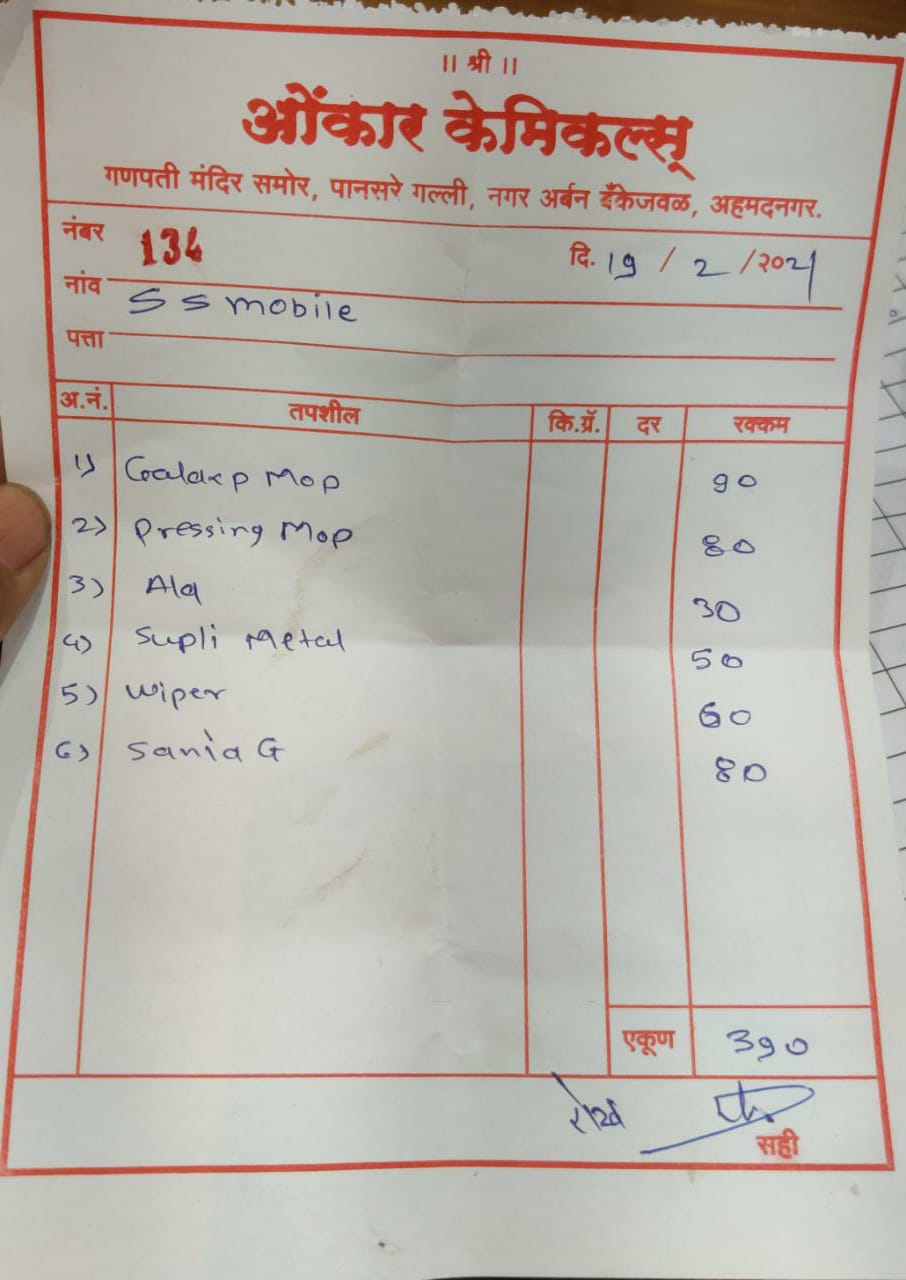 ॥ श्री ॥
ओंकार केमिकल्स्
गणपती मंदिर समोर, पानसरे गल्ली, नगर अर्बन बँकेजवळ, अहमदनगर.
नंबर 134 दि. 19 / 2 / २०21
नांव S S mobile
पत्ता
अ.नं. तपशील कि.ग्रॅ. दर रक्कम
1) Galaxp Mop 90
2) Pressing Mop 80
3) Ala 30
4) Supli Metal 50
5) Wiper 60
6) Sania G 80
एकूण 390
रोख
सही